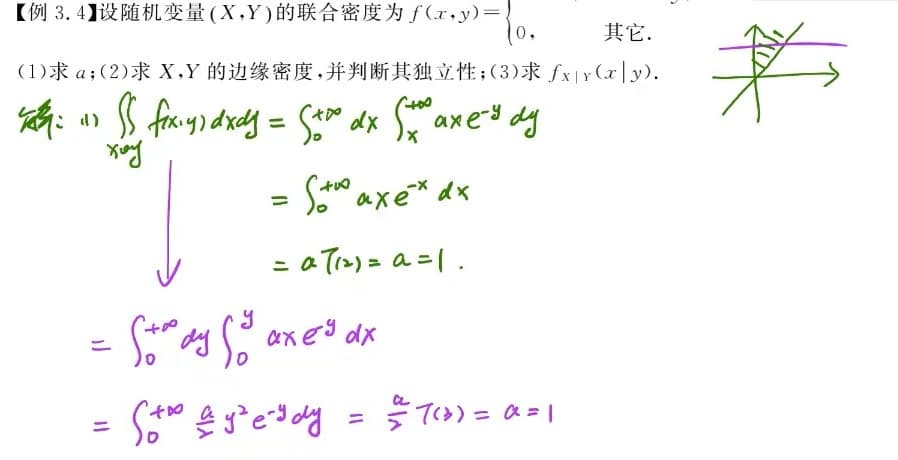 【例 3.4】设随机变量(X,Y)的联合密度为 f(x,y)={ 0, 其它.
(1)求 a;(2)求 X,Y 的边缘密度,并判断其独立性;(3)求 f_{X|Y}(x|y).
解: (1) ∬_{x<y} f(x,y)dxdy = ∫_0^{+∞} dx ∫_x^{+∞} axe^{-y} dy
= ∫_0^{+∞} axe^{-x} dx
= aΓ(2) = a = 1 .
= ∫_0^{+∞} dy ∫_0^y axe^{-y} dx
= ∫_0^{+∞} a/2 y^2 e^{-y} dy = a/2 Γ(3) = a = 1